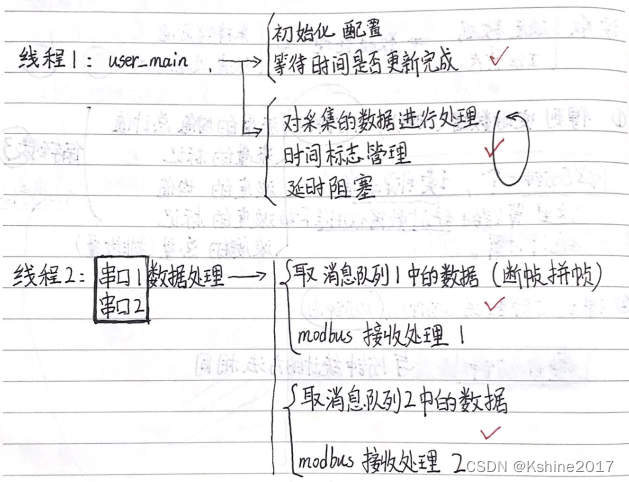 线程1: user_main
初始化 配置
等待时间是否更新完成
对采集的数据进行处理
时间标志管理
延时阻塞
线程2: 串口1 数据处理
串口2
取消息队列1中的数据 (断帧拼帧)
modbus 接收处理 1
取消息队列2中的数据
modbus 接收处理 2
CSDN @Kshine2017